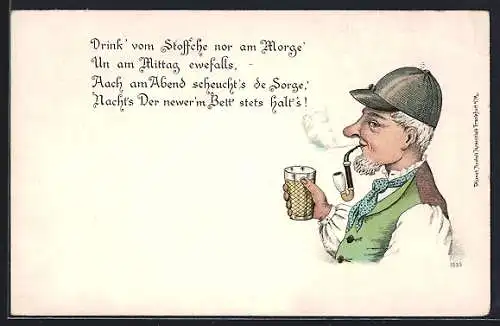 Drink' vom Stoffche nor am Morge'
Un am Mittag ewefalls, -
Aach am Abend scheucht's de Sorge,'
Nachts Der newer'm Bett' stets halt's!
1535